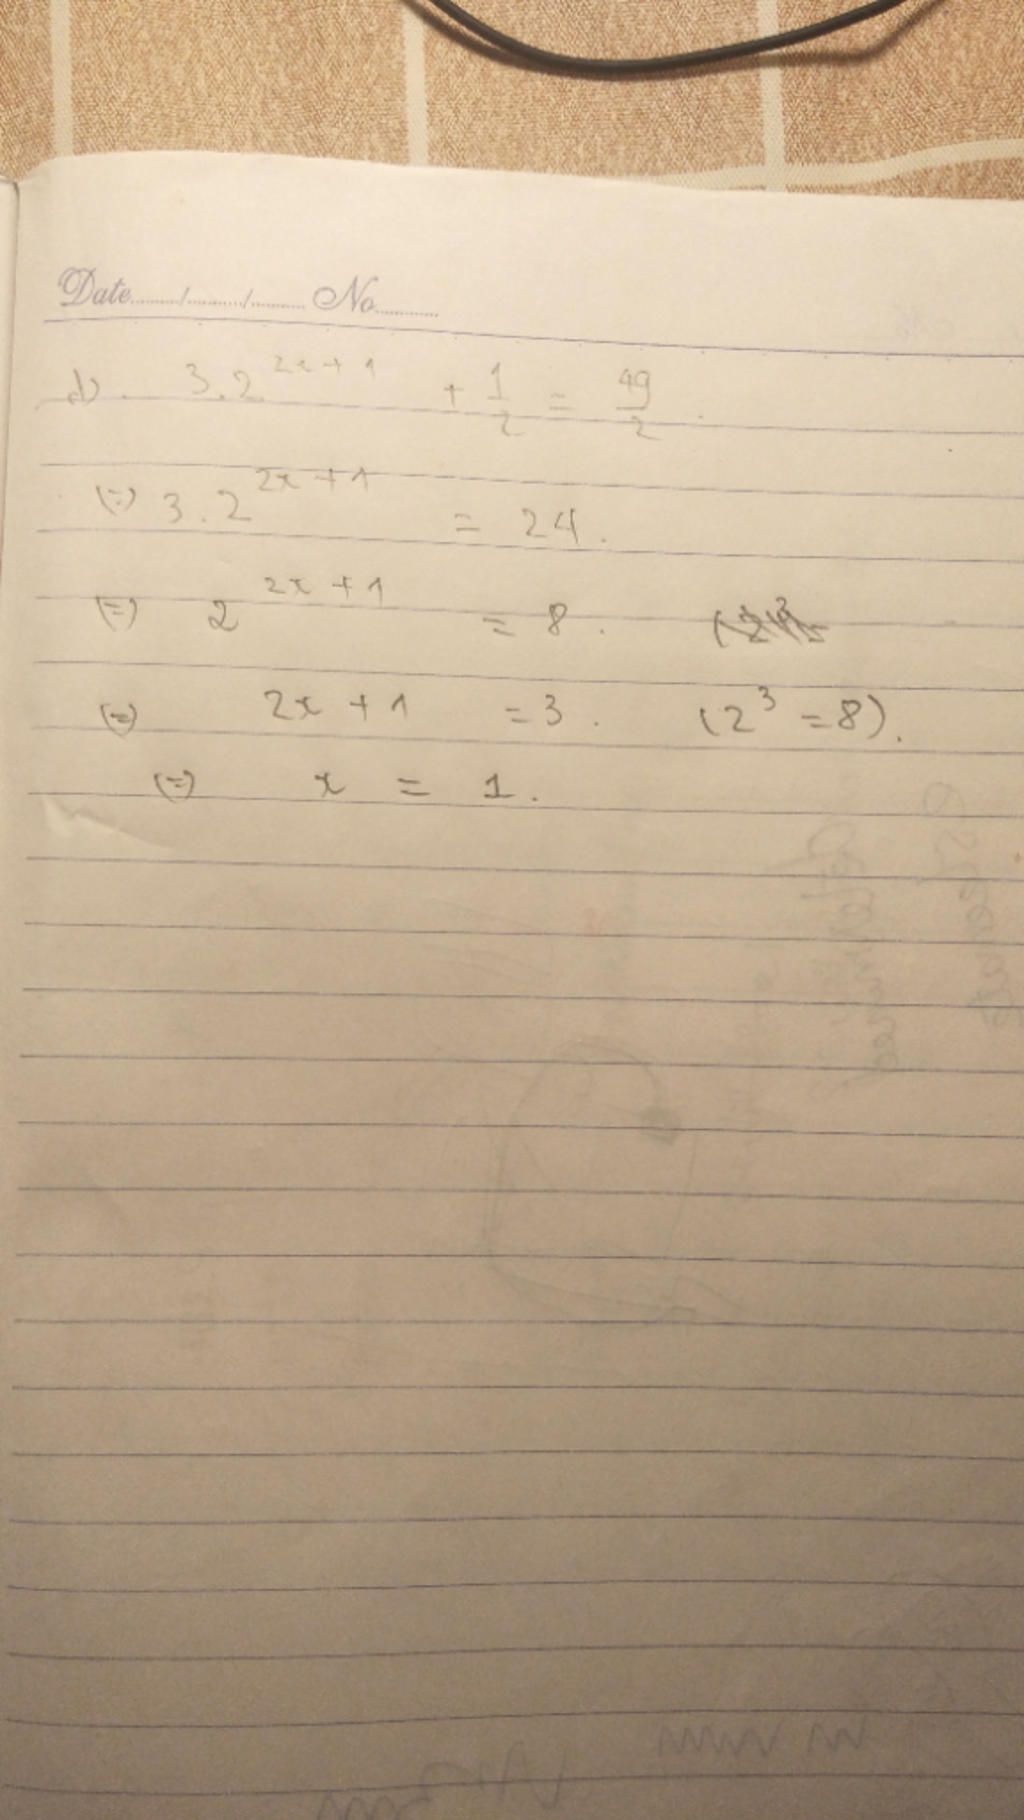 Date......../......../........ No..........
d) 3.2^{2x+1} + 1/2 = 49/2.
(=) 3.2^{2x+1} = 24.
(=) 2^{2x+1} = 8.
(=) 2x+1 = 3. (2^3 = 8).
(=) x = 1.